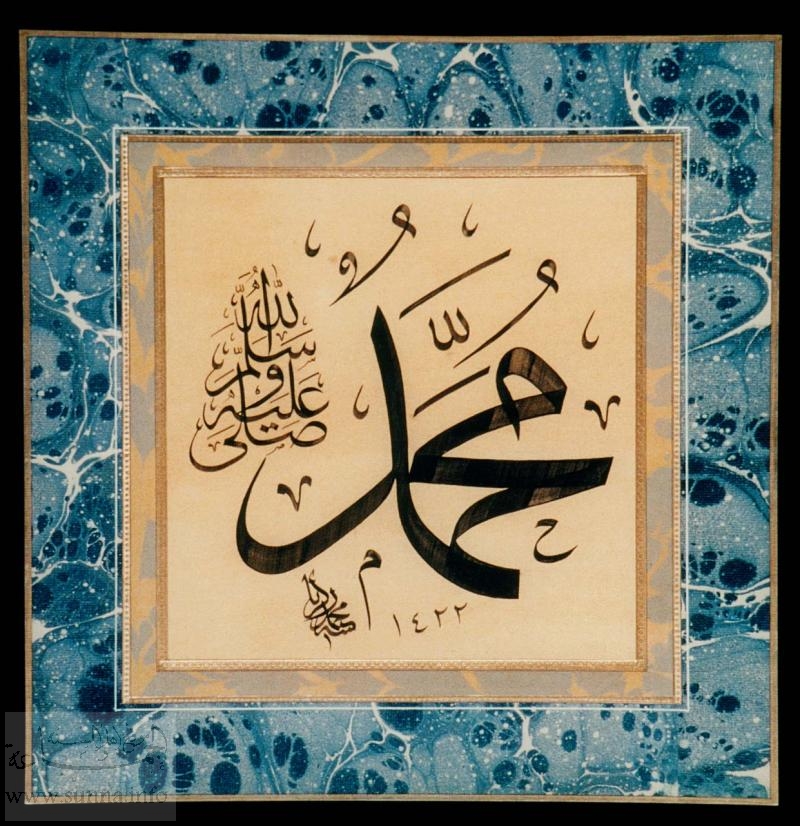 مُحَمَّدٌ
صلى الله عليه وسلم
١٤٢٢
www.sunna.info